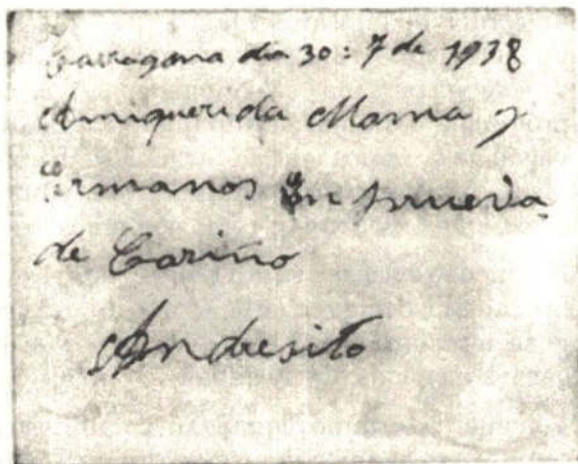 Tarragona dia 30: 7 de 1938
Amiquerida Mama y
Ermanos En prueva
de Cariño
Andresito